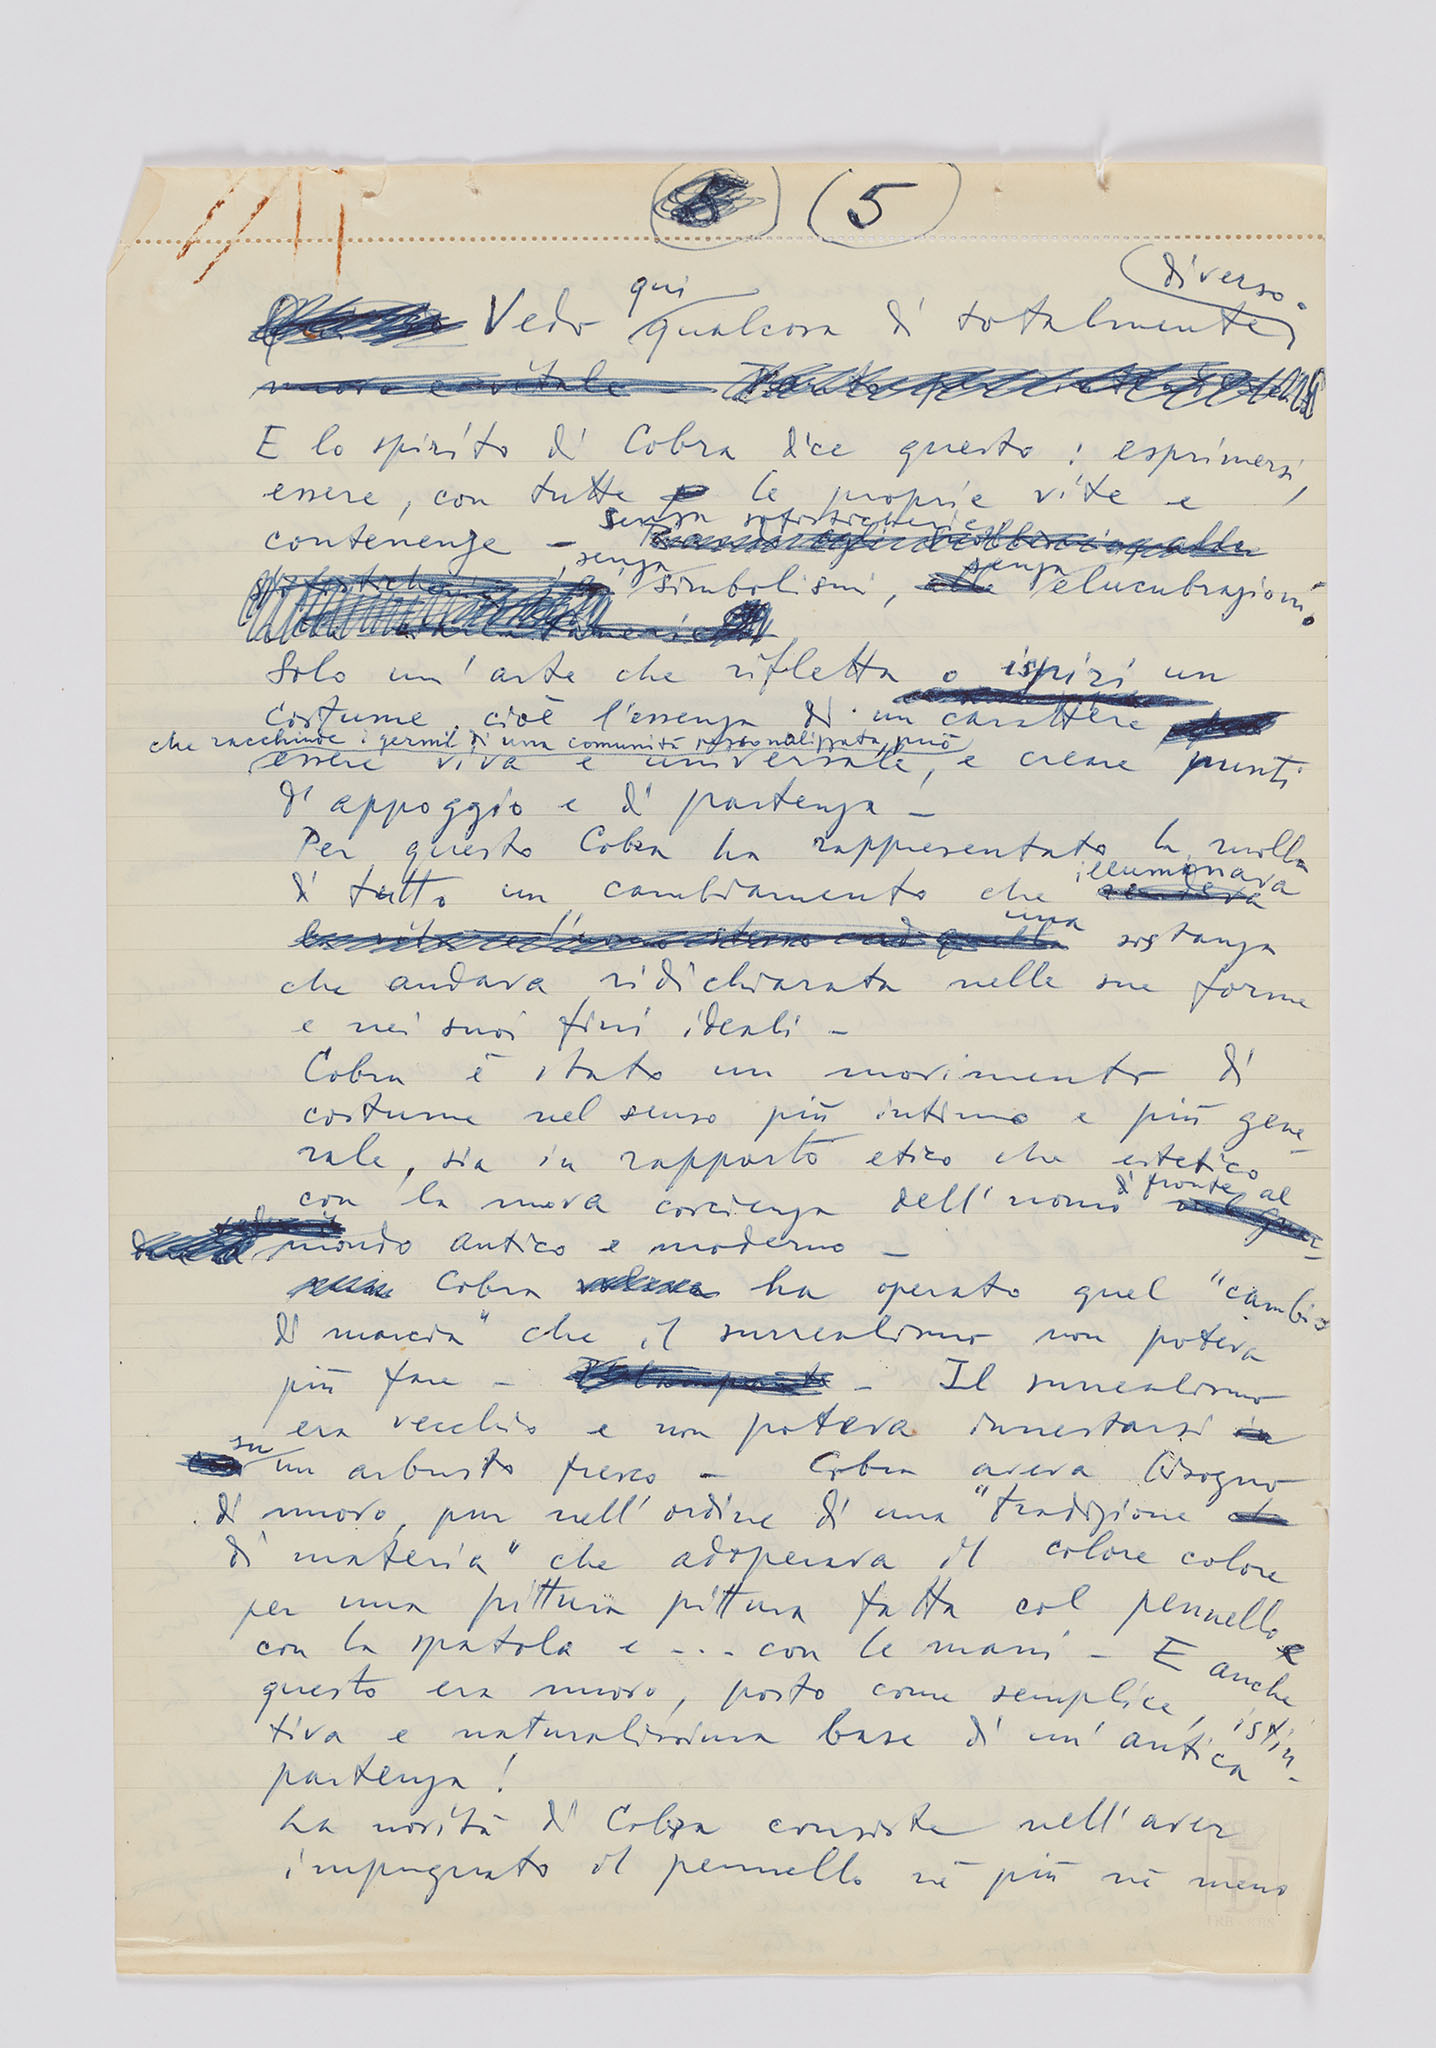 (5)
Vedo qui qualcosa di totalmente diverso.
E lo spirito di Cobra dice questo : esprimersi,
essere, con tutte le proprie vite e
contenenze - senza sofisticherie
, senza simbolismi, senza elucubrazioni.
Solo un'arte che rifletta o ispiri un
costume, cioè l'essenza di un carattere
che racchiude i germi di una comunità personalizzata, può
essere viva e universale, e creare punti
d'appoggio e di partenza -
Per questo Cobra ha rappresentato la molla
di tutto un cambiamento che illuminava
una sostanza
che andava ridichiarata nelle sue forme
e nei suoi fini ideali -
Cobra è stato un movimento di
costume nel senso più intimo e più gene-
rale, sia in rapporto etico che estetico
con la nuova coscienza dell'uomo di fronte al
mondo antico e moderno -
Cobra ha operato quel "cambio
di marcia" che il surrealismo non poteva
più fare - - Il surrealismo
era vecchio e non poteva innestarsi
su un arbusto fresco - Cobra aveva bisogno
di nuovo, pur nell'ordine di una "tradizione
di materia" che adoperava il colore colore
per una pittura pittura fatta col pennello
con la spatola e ... con le mani - E anche
questo era nuovo, posto come semplice, istin-
tiva e naturalissima base di un'antica
partenza!
La novità di Cobra consiste nell'aver
impugnato il pennello nè più nè meno